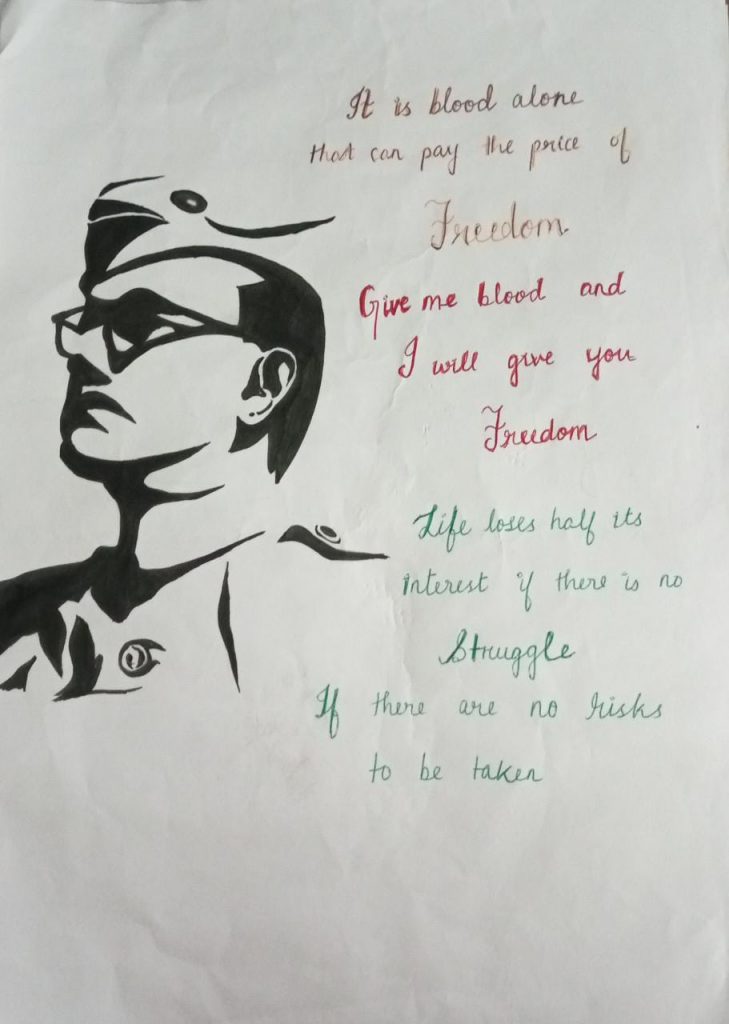 It is blood alone
that can pay the price of
Freedom
Give me blood and
I will give you
Freedom
Life loses half its
interest if there is no
Struggle
If there are no risks
to be taken